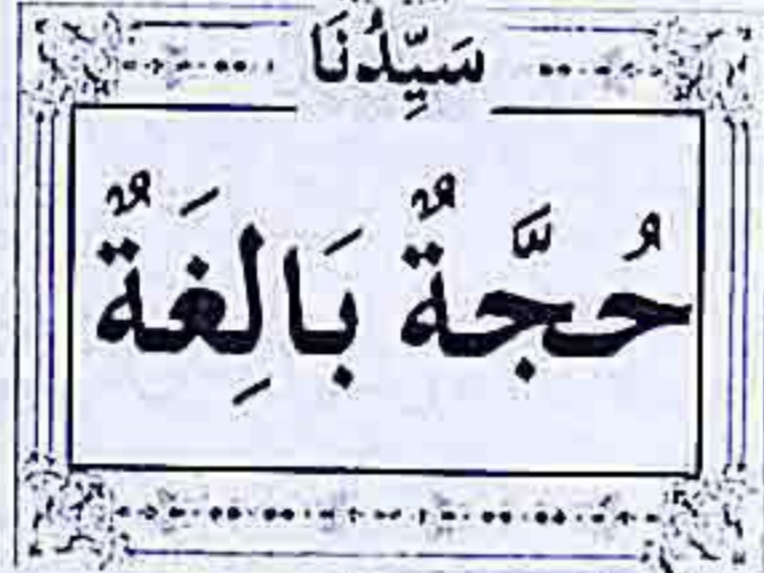 سَيِّدُنَا
حُجَّةٌ بَالِغَةٌ